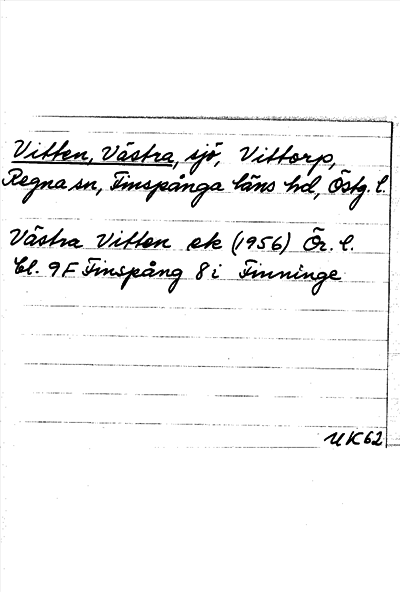 Vitten, Västra, sjö, Vittorp,
Regna sn, Finspånga läns hd, Östg. l.
Västra Vitten ek (1956) Ör. l.
bl. 9F Finspång 8i Finninge
UK62